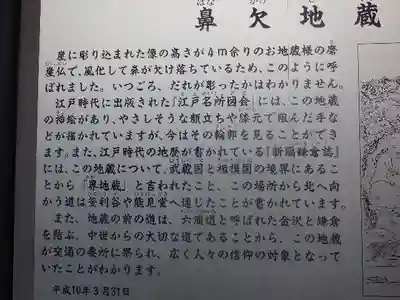 鼻欠地蔵
はな かけ じ ぞう
崖に彫り込まれた像の高さが4m余りのお地蔵様の磨
崖仏で、風化して鼻が欠け落ちているため、このように呼
ばれました。いつごろ、だれが彫ったかはわかりません。
江戸時代に出版された『江戸名所図会』には、この地蔵
の挿絵があり、やさしそうな顔立ちや膝元で組んだ手な
どが描かれていますが、今はその輪郭を見ることができ
ます。また、江戸時代の地歴が書かれている『新編鎌倉誌』
には、この地蔵について、武蔵国と相模国の境界にあるこ
とから「界地蔵」と言われたこと、この場所から北へ向
かう道は釜利谷や能見堂へ通じたことが書かれています。
また、地蔵の前の道は、六浦道と呼ばれた金沢と鎌倉
を結ぶ、中世からの大切な道であることから、この地蔵
が交通の要所に祭られ、広く人々の信仰の対象となって
いたことがわかります。
平成10年3月31日